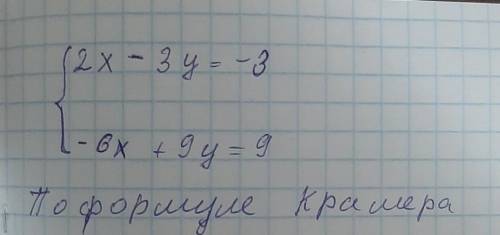 {2x - 3y = -3
-6x + 9y = 9
По формуле Крамера